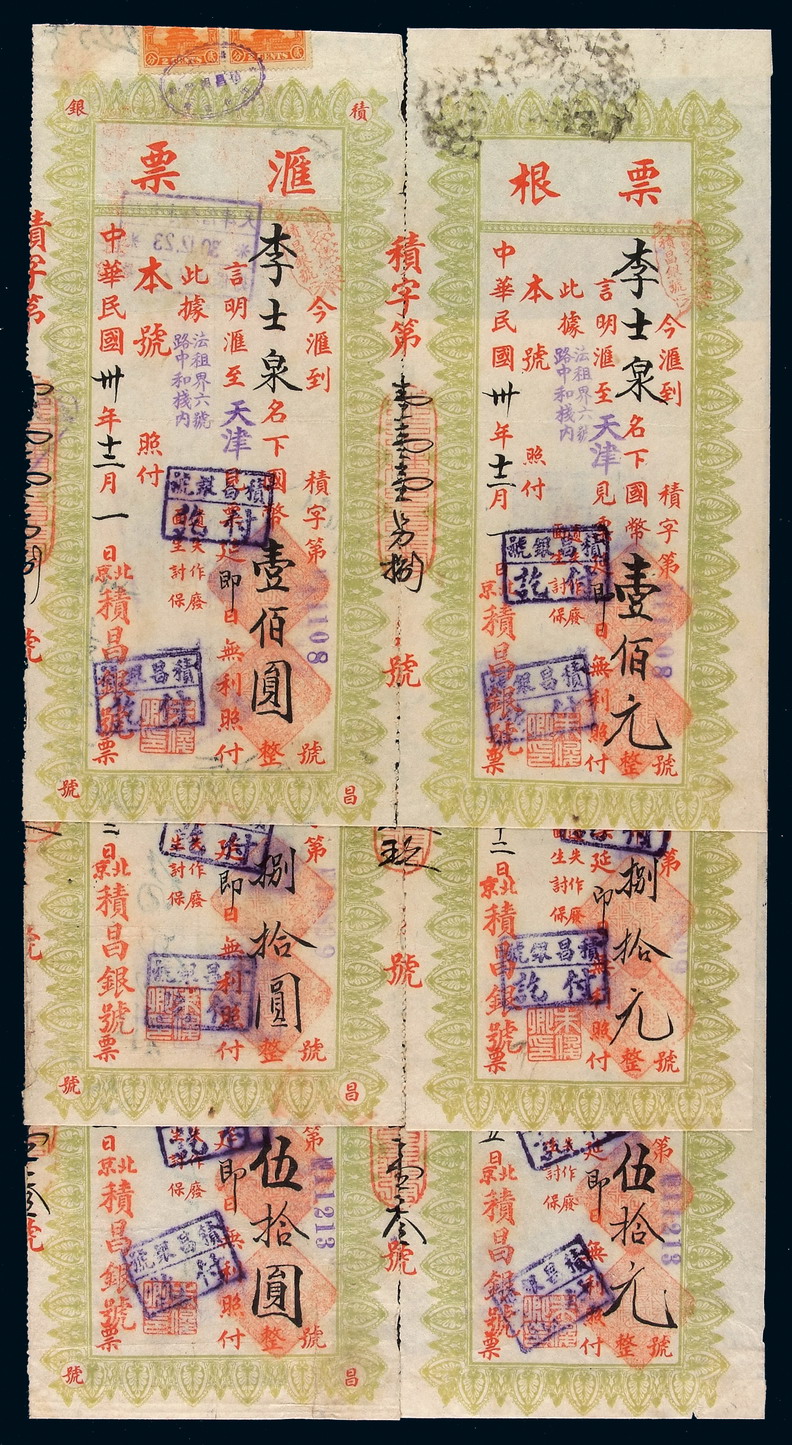 票根
今滙到
李士泉名下國幣壹佰元整
言明滙至天津見票延即日無利照付
此據
法租界六號
路中和棧内
遺失作廢
配生討保
本號照付
中華民國卅年十二月一日
北京積昌銀號票
積字第
號
積昌銀號
付訖
積昌銀號
付訖
積字第
號
銀
積
號
昌
滙票
今滙到
李士泉名下國幣壹佰圓整
言明滙至天津見票延即日無利照付
此據
法租界六號
路中和棧内
本號照付
中華民國卅年十二月一日
北京積昌銀號票
積字第
108
號
積昌銀號
付訖
積昌銀號
付訖
30.12.23
2 CENTS
第
號
捌拾元整
延即日無利照付
失作廢
生討保
十二日
北京積昌銀號票
積昌銀號
付訖
玖
號
第
號
捌拾圓整
延即日無利照付
失作廢
生討保
二日
北京積昌銀號票
號
昌
第
11213
號
伍拾元整
延即日無利照付
北京積昌銀號票
壹叁
號
第
11213
號
伍拾圓整
延即日無利照付
日
北京積昌銀號票
積昌銀號
號
昌